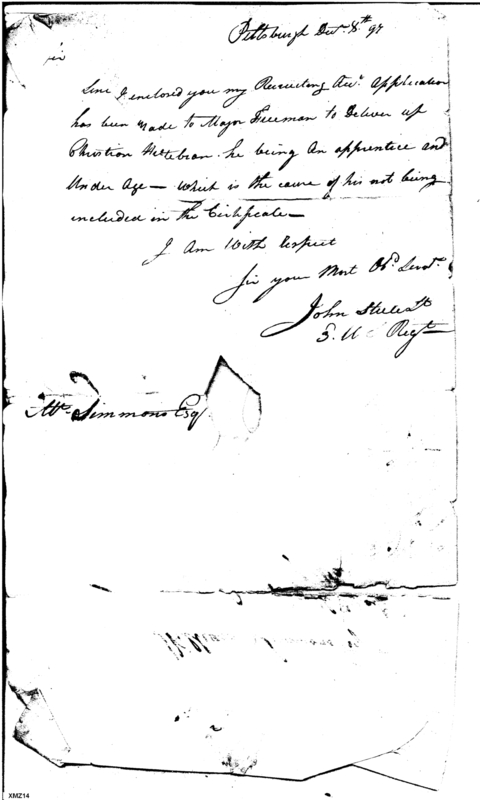 Pittsburgh Decr. 8th 97
Sir
Since I enclosed you my Recruiting Act. Application
has been made to Major Freeman to Deliver up
Christian he being An apprentice and
Under Age — Which is the cause of his not being
included in the Certificate —
I Am With respect
Sir your Most Obd. Servt.
John Steele Lt
3. U Regt
Mr. Simmons Esq
XMZ14